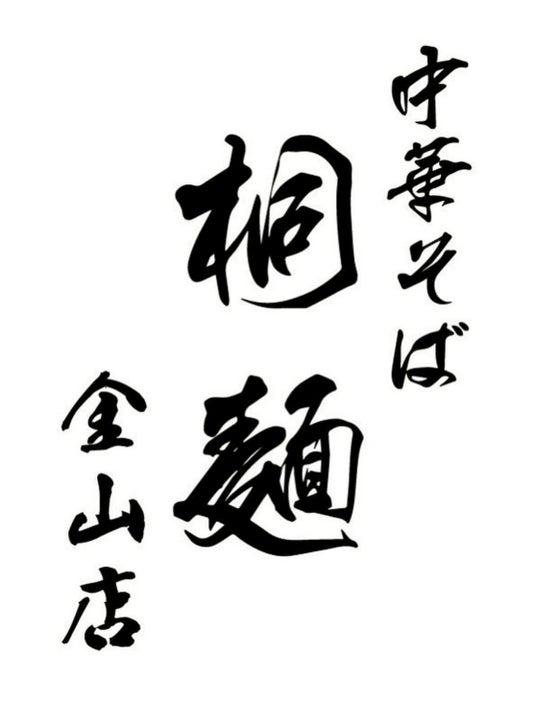 中華そば
桐麺
金山店